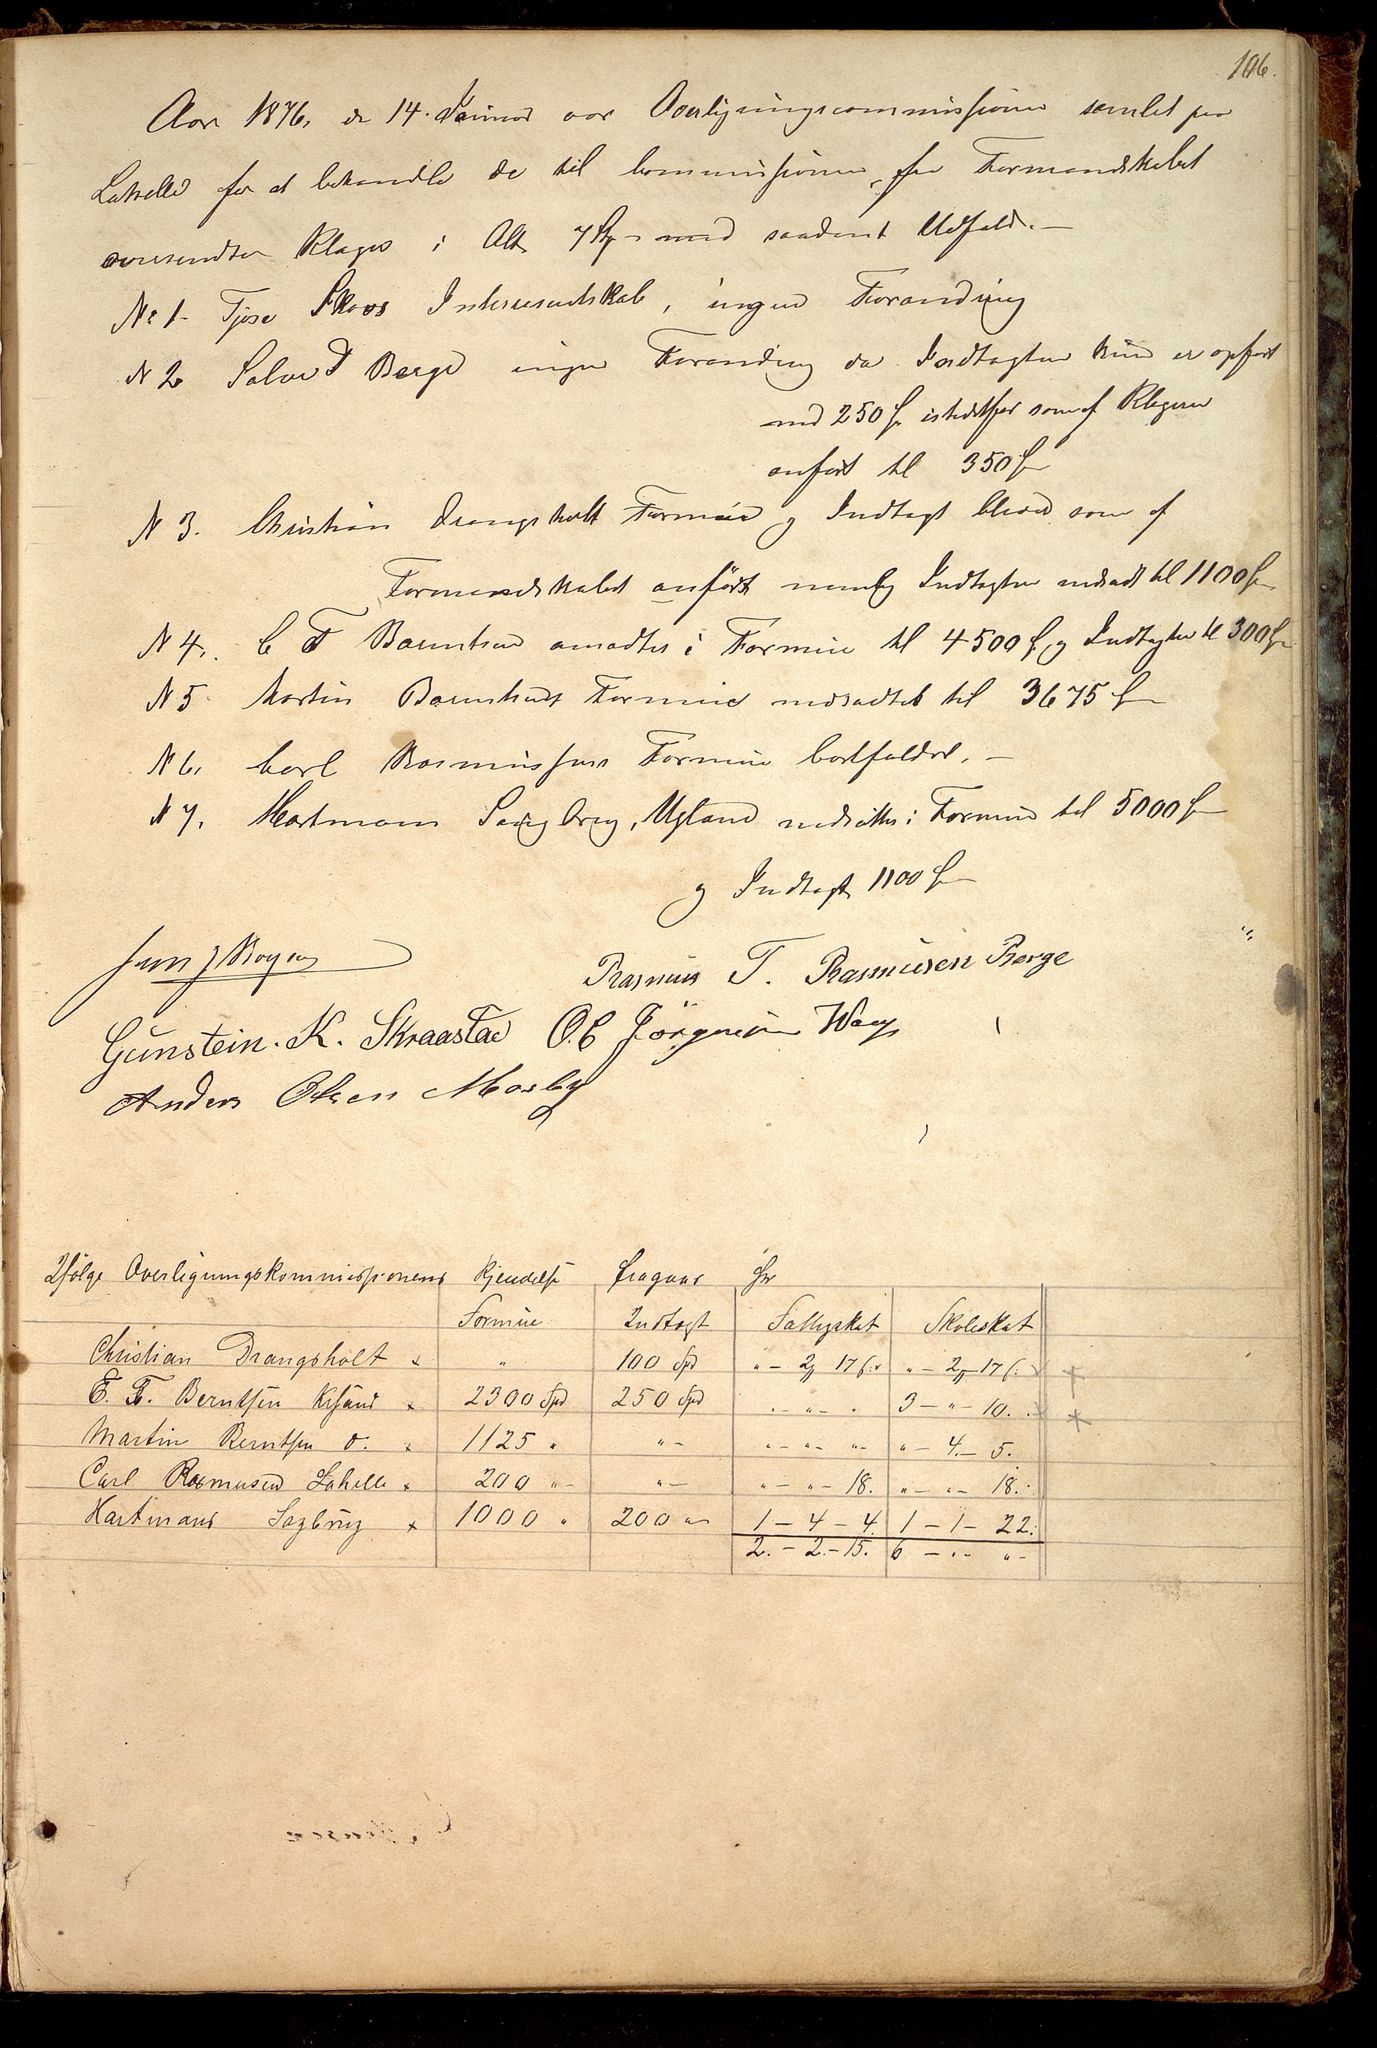 106.
Aar 1876, de 14. Januar var Overligningscommissionen samlet paa
Lahelle for at behandle de til Commissionen fra Formandskabet
oversendte Klager i Alt 7 St med saadant Udfald. —
No 1. Tjose Skovs Interessentskab, ingen Forandring
N 2 Salve T Berge ingen Forandring da Indtægten kun er opført
med 250 Sp istedetfor som af Klageren
anført til 350 Sp
N 3. Christian Drangsholt Formue og Indtægt blived som af
Formandskabet anført nemlig Indtægten nedsadt til 1100 Sp
N 4. C F Berntsen ansadtes i Formue til 4500 Sp og Indtægten til 300 Sp
N 5. Martin Berntsens Formue nedsadtes til 3675 Sp
N 6. Carl Rasmussens Formue bortfaldt. —
N 7. Hartmann Sagbrug, Ugland nedsættes i Formue til 5000 Sp
og Indtægt 1100 Sp
Rasmus T. Rasmusen Berge
Gunstein. K. Skraastad O. C Jörgensen Waag
Anders Olsen Mosby
Ifølge Overligningskommissionens Kjendelse fragaar for
Formue Indtægt Fattigskat Skoleskat
Christian Drangsholt x " 100 Spd " - 2 - 17 s. " - 2 - 17 s.
C. F. Berntsen Krsand x 2300 Spd 250 Spd " - " - " 3 - " - 10.
Martin Berntsen do. x 1125 " " - " - " - " " - 4 - 5.
Carl Rasmusen Lahelle x 200 " - " - " - " - 18. " - " - 18.
Hartmans Sagbrug x 1000 " 200 " 1 - 4 - 4. 1 - 1 - 22.
2. - 2. - 15. 6 - " - " -